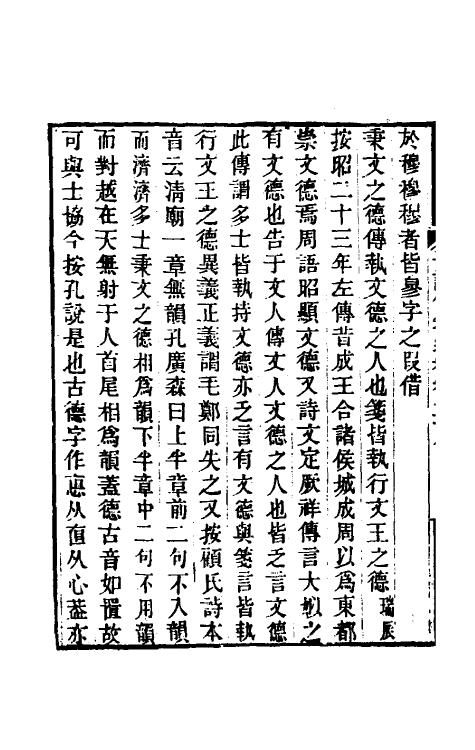 於穆穆穆者皆㣎字之叚借
秉文之德傳執文德之人也箋皆執行文王之德瑞辰
按昭二十三年左傳昔成王合諸侯城成周以爲東都
崇文德焉周語昭顯文德又詩文定厥祥傳言大姒之
有文德也告于文人傳文人文德之人也皆乏言文德
此傳謂多士皆執持文德亦乏言有文德與箋言皆執
行文王之德異義正義謂毛鄭同失之又按顧氏詩本
音云清廟一章無韻孔廣森曰上半章前二句不入韻
而濟濟多士秉文之德相爲韻下半章中二句不用韻
而對越在天無射于人首尾相爲韻蓋德古音如置故
可與士協今按孔說是也古德字作悳从直从心葢亦